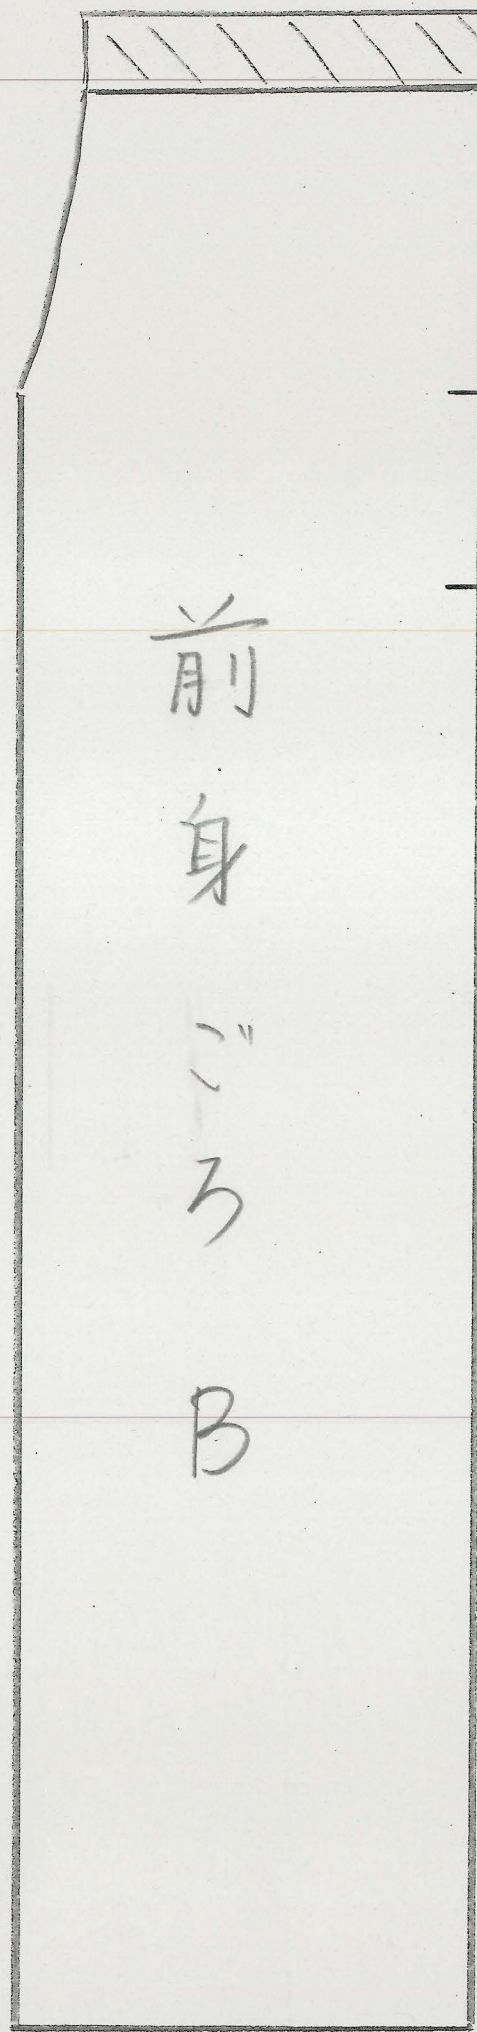 前身ごろB